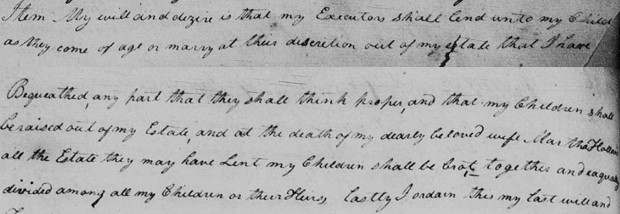 Item My will and dezire is that my Executors shall lend unto my Child
as they come of age or marry at their discretion out of my estate that I have
Bequeathed any part that they shall think proper, and that my Children shall
be raised out of my Estate, and at the death of my dearly beloved wife Martha
all the Estate they may have Lent my Children shall be brot together and eaqually
divided among all my Children or their Heirs, Lastly I ordain this my last will and